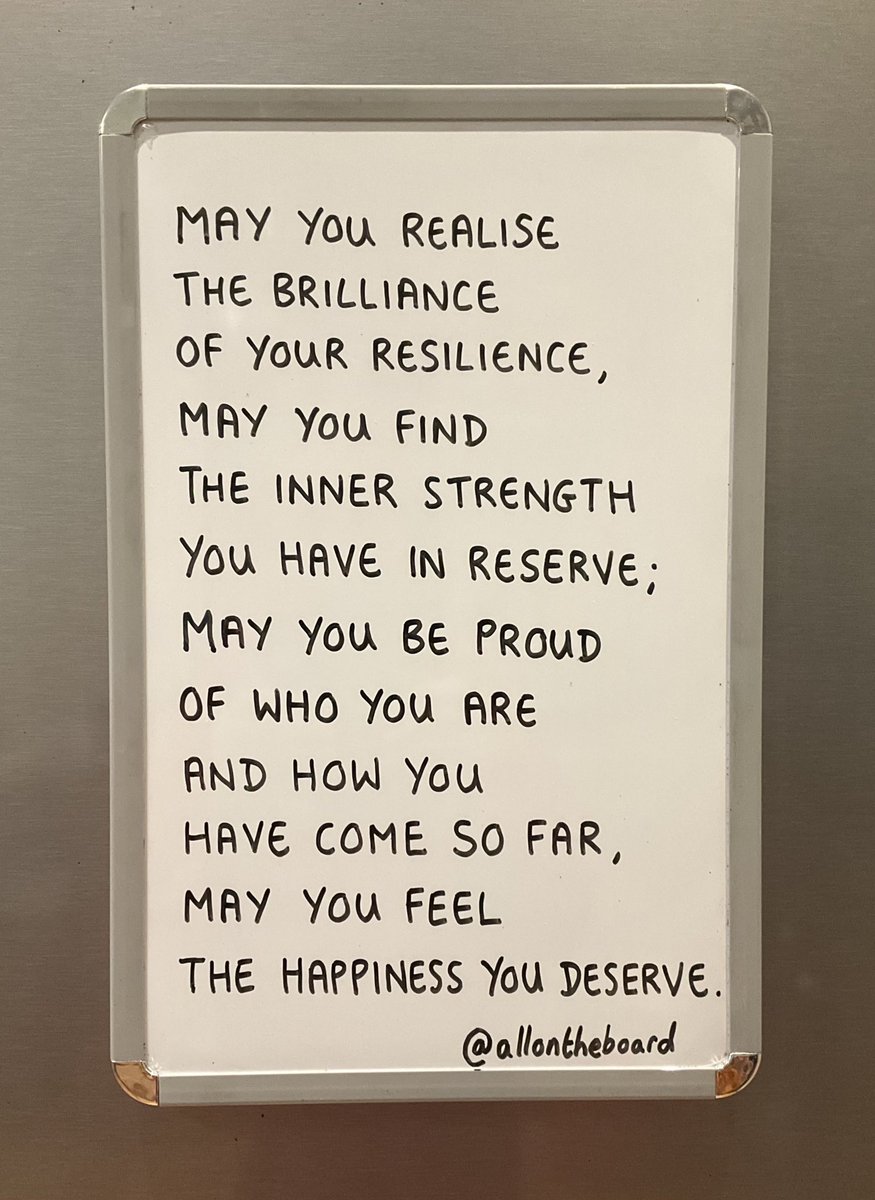 MAY YOU REALISE
THE BRILLIANCE
OF YOUR RESILIENCE,
MAY YOU FIND
THE INNER STRENGTH
YOU HAVE IN RESERVE;
MAY YOU BE PROUD
OF WHO YOU ARE
AND HOW YOU
HAVE COME SO FAR,
MAY YOU FEEL
THE HAPPINESS YOU DESERVE.
@allontheboard